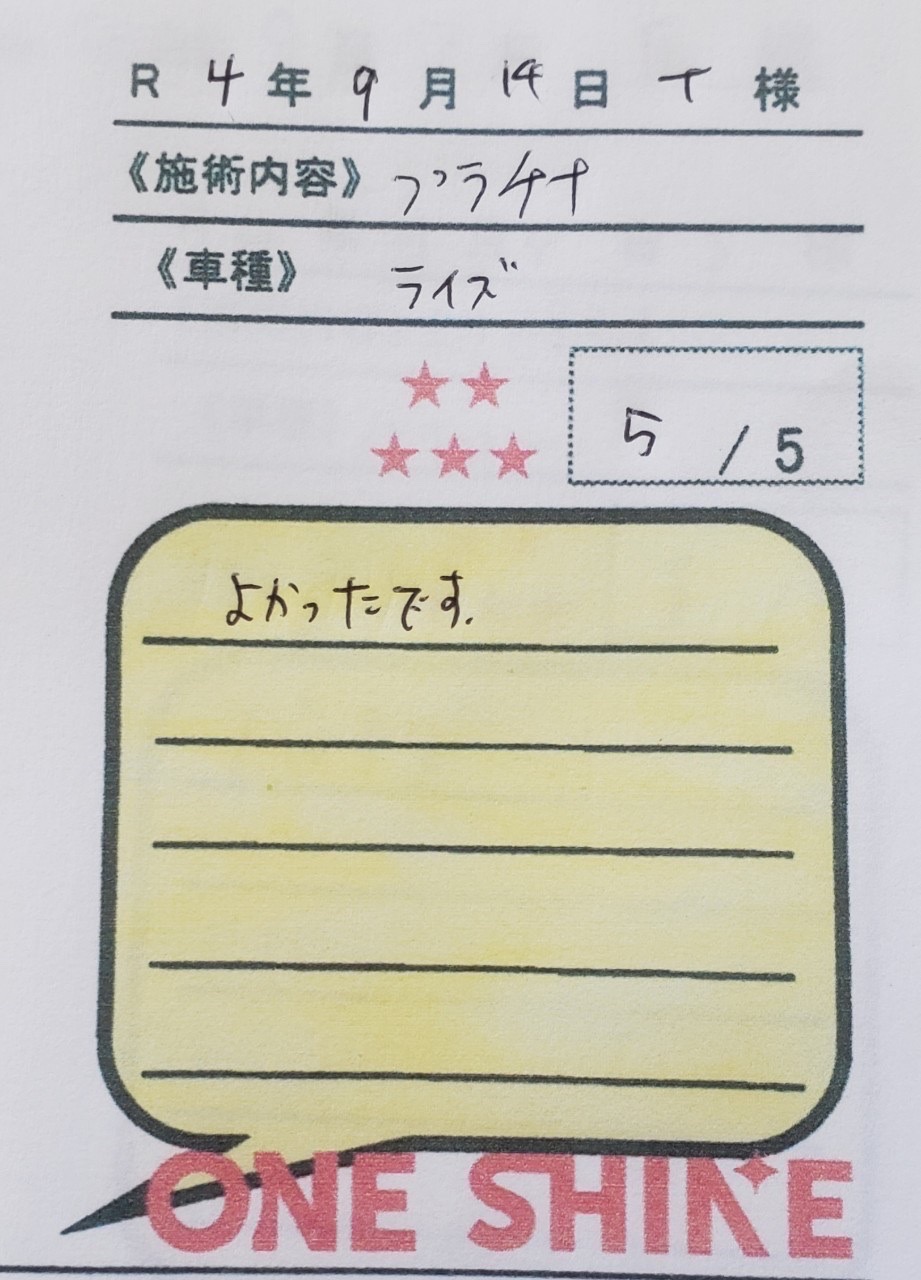 R 4年 9月 14日 T 様
《施術内容》 プラチナ
《車種》 ライズ
★★
★★★
5 / 5
よかったです.
ONE SHINE